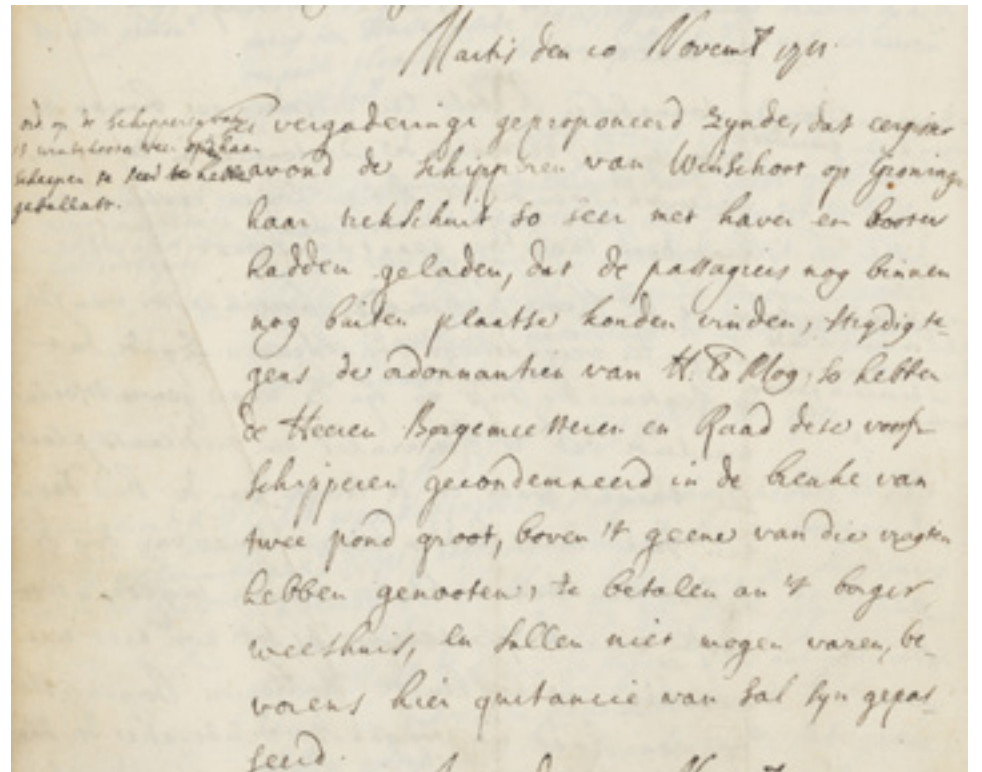 Martis den 10 Novemb 1711.
op de schippers van
Winschoten weer
schuepen te seer te hebben
geballast.
Ter vergaderinge geproponeerd zynde, dat eergister
avond de schipperen van Winschoot op Groninge
haar trekschuit so seer met haver en boter
hadden geladen, dat de passagiers nog binnen
nog buiten plaatse konden vinden, strydig te-
gens de ordonnantien van H. Ed Mog, so hebben
de Heeren Borgemeesteren en Raad dese voorsr
schipperen gecondemneerd in de breuke van
twee pond groot, boven 't geene van die vragten
hebben genooten, te betalen an 't borger
weeshuis, en sullen niet mogen varen, be-
vorens hier quitancie van sal syn gepas-
seerd.